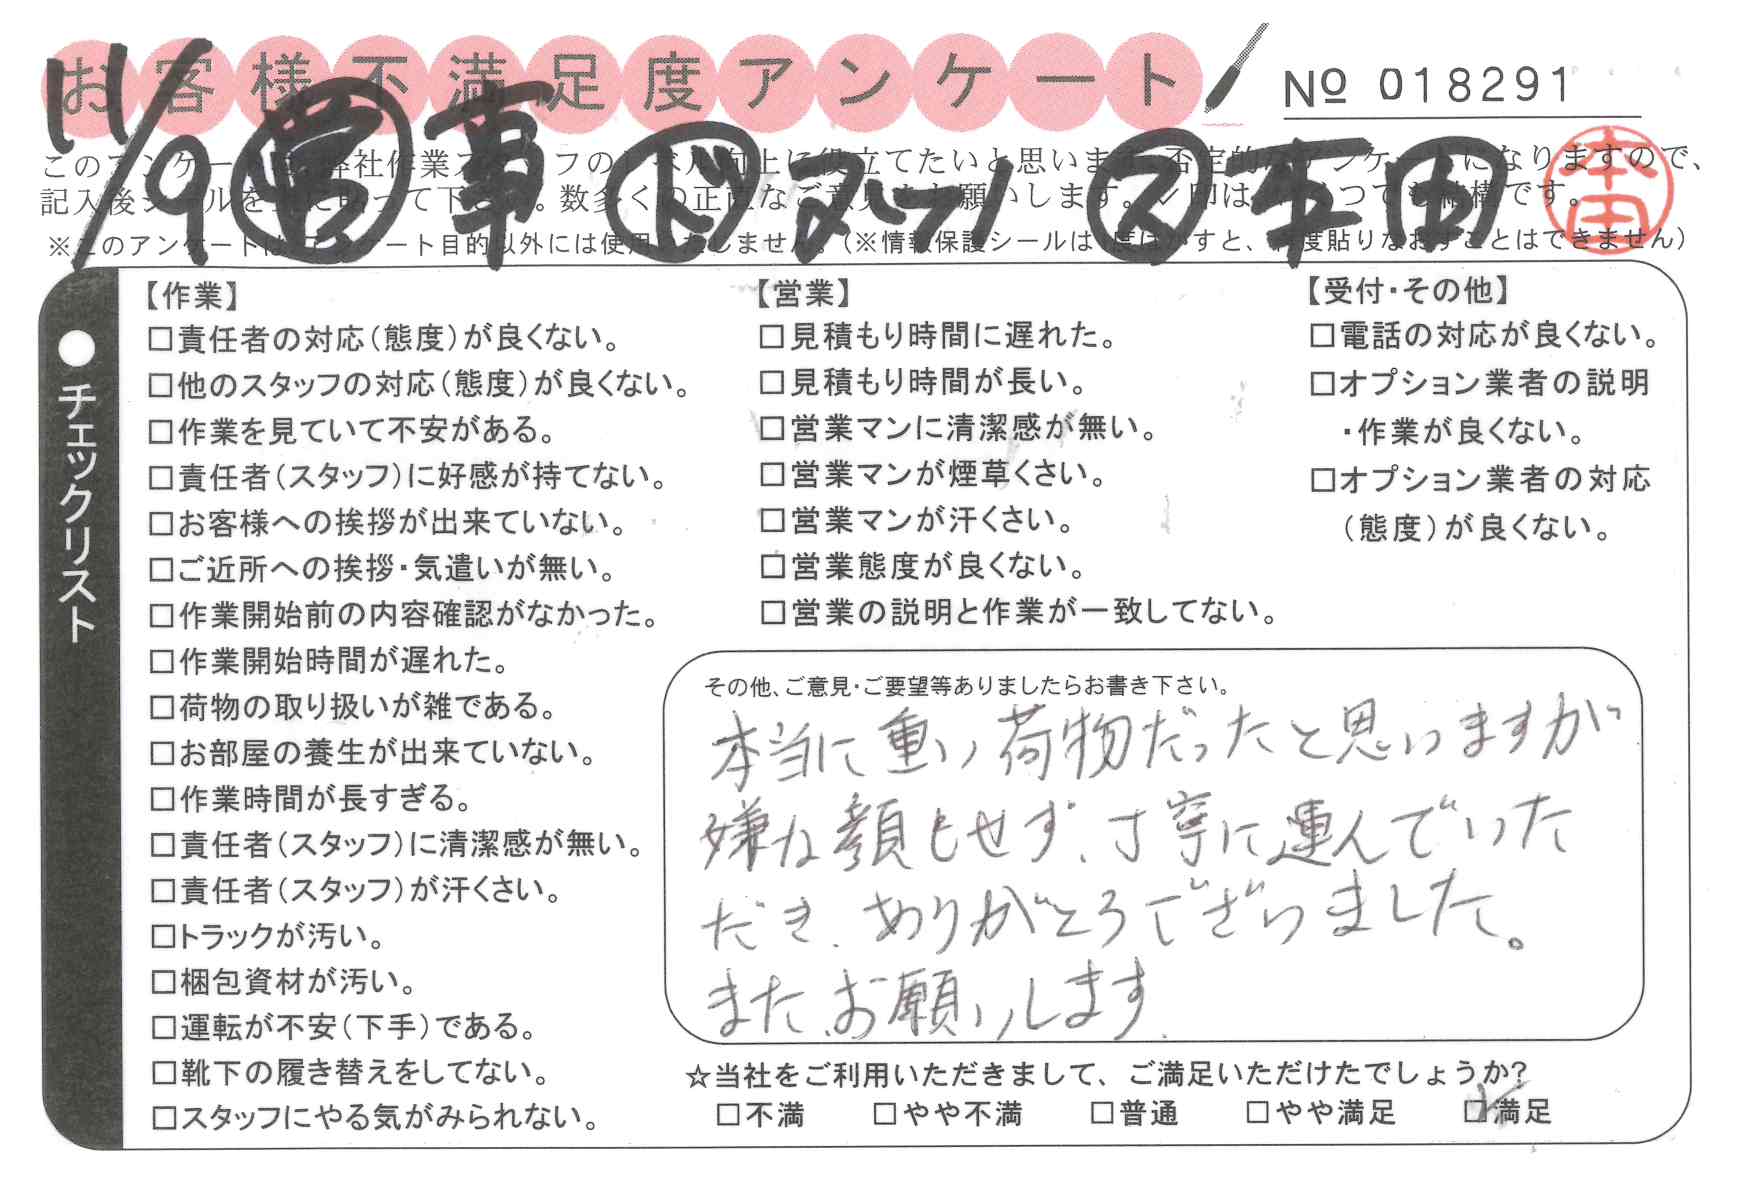 お客様不満足度アンケート
No 018291
11/9 営 事 ド ス 平田
本田
このアンケートは、弊社作業スタッフのレベル向上に役立てたいと思います。否定的なアンケートになりますので、
記入後シールを上に貼って下さい。数多くの正直なご意見をお願いします。✓印は、いくつでも結構です。
※このアンケートは、アンケート目的以外には使用いたしません。(※情報保護シールは1度はがすと、再度貼りなおすことはできません)
●チェックリスト
【作業】
□責任者の対応(態度)が良くない。
□他のスタッフの対応(態度)が良くない。
□作業を見ていて不安がある。
□責任者(スタッフ)に好感が持てない。
□お客様への挨拶が出来ていない。
□ご近所への挨拶・気遣いが無い。
□作業開始前の内容確認がなかった。
□作業開始時間が遅れた。
□荷物の取り扱いが雑である。
□お部屋の養生が出来ていない。
□作業時間が長すぎる。
□責任者(スタッフ)に清潔感が無い。
□責任者(スタッフ)が汗くさい。
□トラックが汚い。
□梱包資材が汚い。
□運転が不安(下手)である。
□靴下の履き替えをしてない。
□スタッフにやる気がみられない。
【営業】
□見積もり時間に遅れた。
□見積もり時間が長い。
□営業マンに清潔感が無い。
□営業マンが煙草くさい。
□営業マンが汗くさい。
□営業態度が良くない。
□営業の説明と作業が一致してない。
【受付・その他】
□電話の対応が良くない。
□オプション業者の説明
・作業が良くない。
□オプション業者の対応
(態度)が良くない。
その他、ご意見・ご要望等ありましたらお書き下さい。
本当に重い荷物だったと思いますが
嫌な顔もせず、丁寧に運んでいた
だき、ありがとうございました。
また、お願いします。
☆当社をご利用いただきまして、ご満足いただけたでしょうか?
□不満 □やや不満 □普通 □やや満足 ☑満足